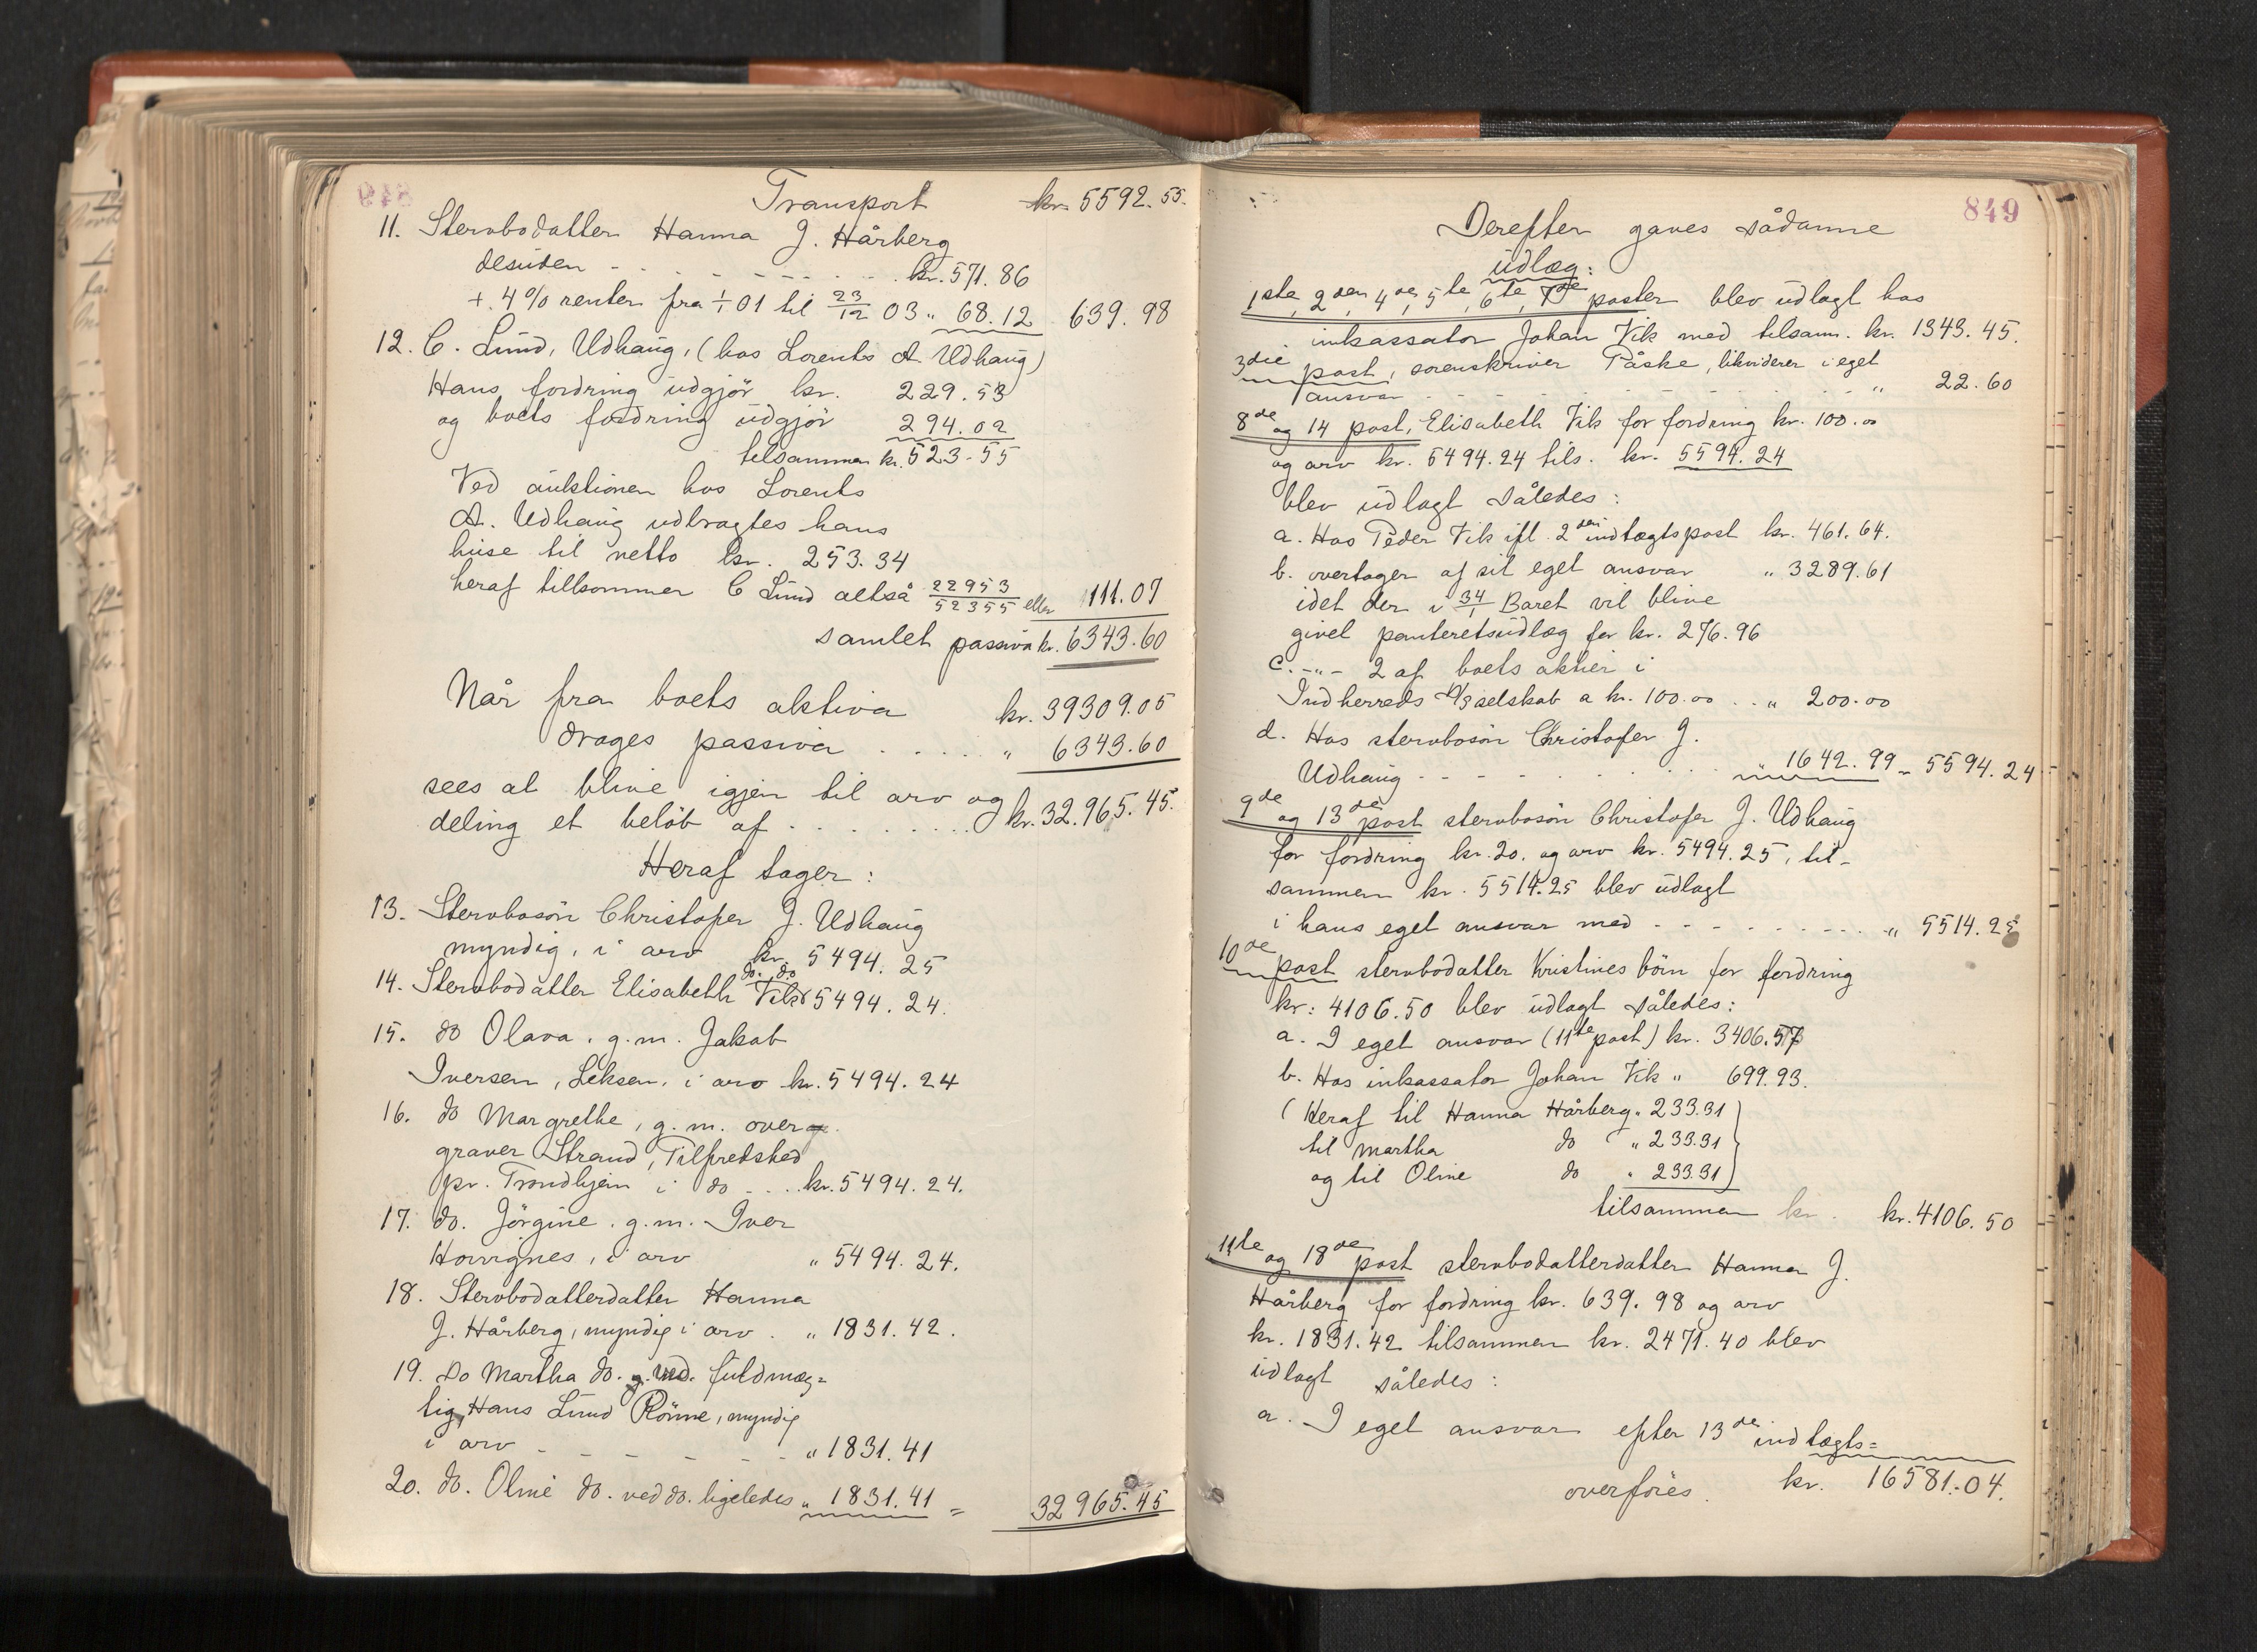 848
Transport kr. 5592.55.
11. Stervbodatter Hanna J. Hårberg
desuden - - - - - - - - kr. 571.86
+ 4% renter fra 1/1 01 til 23/12 03 „ 68.12 639.98
12. C. Lund, Udhaug, (hos Lorents A. Udhaug)
Hans fordring udgjør kr. 229.53
og boets fordring udgjør 294.02
tilsammen kr. 523-55
Ved auktionen hos Lorents
A. Udhaug udbragtes hans
huse til netto kr. 253.34
heraf tilkommer C Lund altså 22953/52355 eller 111.07
samlet passiva kr. 6343.60
Når fra boets aktiva kr. 39309.05
drages passiva . . . . „ 6343.60
sees at blive igjen til arv og
deling et beløb af . . . . . . . . kr. 32.965.45.
Heraf tager:
13. Stervbosøn Christofer J. Udhaug
myndig, i arv kr. 5494.25
14. Stervbodatter Elisabeth Vik do. do 5494.24.
15. do Olava, g.m. Jakob
Iversen, Leksen, i arv kr. 5494.24
16. do Margrethe, g.m. over
graver Strand, Tilfredshed
pr. Trondhjem i do . . . kr. 5494.24.
17. do. Jørgine. g.m. Iver
Hovignes, i arv „ 5494.24.
18. Stervbodatterdatter Hanna
J. Hårberg, myndig i arv . „ 1831.42.
19. Do Martha do. ved. fuldmæg=
tig, Hans Lund Rønne, myndig
i arv - - - - - - „ 1831.41
20. do. Oline do. ved do. ligeledes „ 1831.41 = 32965.45
849
Derefter gaves sådanne
udlæg:
1ste, 2den, 4de, 5te, 6te, 7de poster blev udlagt hos
inkassator Johan Vik med tilsam. kr. 1343.45.
3die post, sorenskriver Påske, likviderer i eget
ansvar - - - - - - - - - - „ 22.60
8de og 14 post, Elisabeth Vik for fordring kr. 100.00
og arv kr. 5494.24 tils. kr. 5594.24
blev udlagt således:
a. Hos Peder Vik ifl. 2den indtægtspost kr. 461.64.
b. overtager af sit eget ansvar „ 3289.61
idet der i 34/1 Baret vil blive
givet panteretsudlæg for kr. 276.96
c. -„- 2 af boets aktier i
Indherreds D/Sselskab a kr. 100.00 . . „ 200.00
d. Hos stervbosøn Christofer J.
Udhaug - - - - - - - - „ 1642.99 „ 5594.24
9de og 13de post stervbosøn Christofer J. Udhaug
for fordring kr. 20. og arv kr. 5494.25, til-
sammen kr. 5514.25 blev udlagt
i hans eget ansvar med - - - - - - - - - „ 5514.25
10de post stervbodatter Kristines børn for fordring
kr: 4106.50 blev udlagt således:
a. I eget ansvar (11te post) kr. 3406.57
b. Hos inkassator Johan Vik „ 699.93.
(Heraf til Hanna Hårberg „ 233.31
til Martha do „ 233.31
og til Oline do „ 233.31)
tilsammen kr . kr. 4106.50
11te og 18de post stervbodatterdatter Hanna J.
Hårberg for fordring kr. 639.98 og arv
kr. 1831.42 tilsammen kr. 2471.40 blev
udlagt således:
a. I eget ansvar efter 13de indtægts=
overføres . kr. 16581.04.